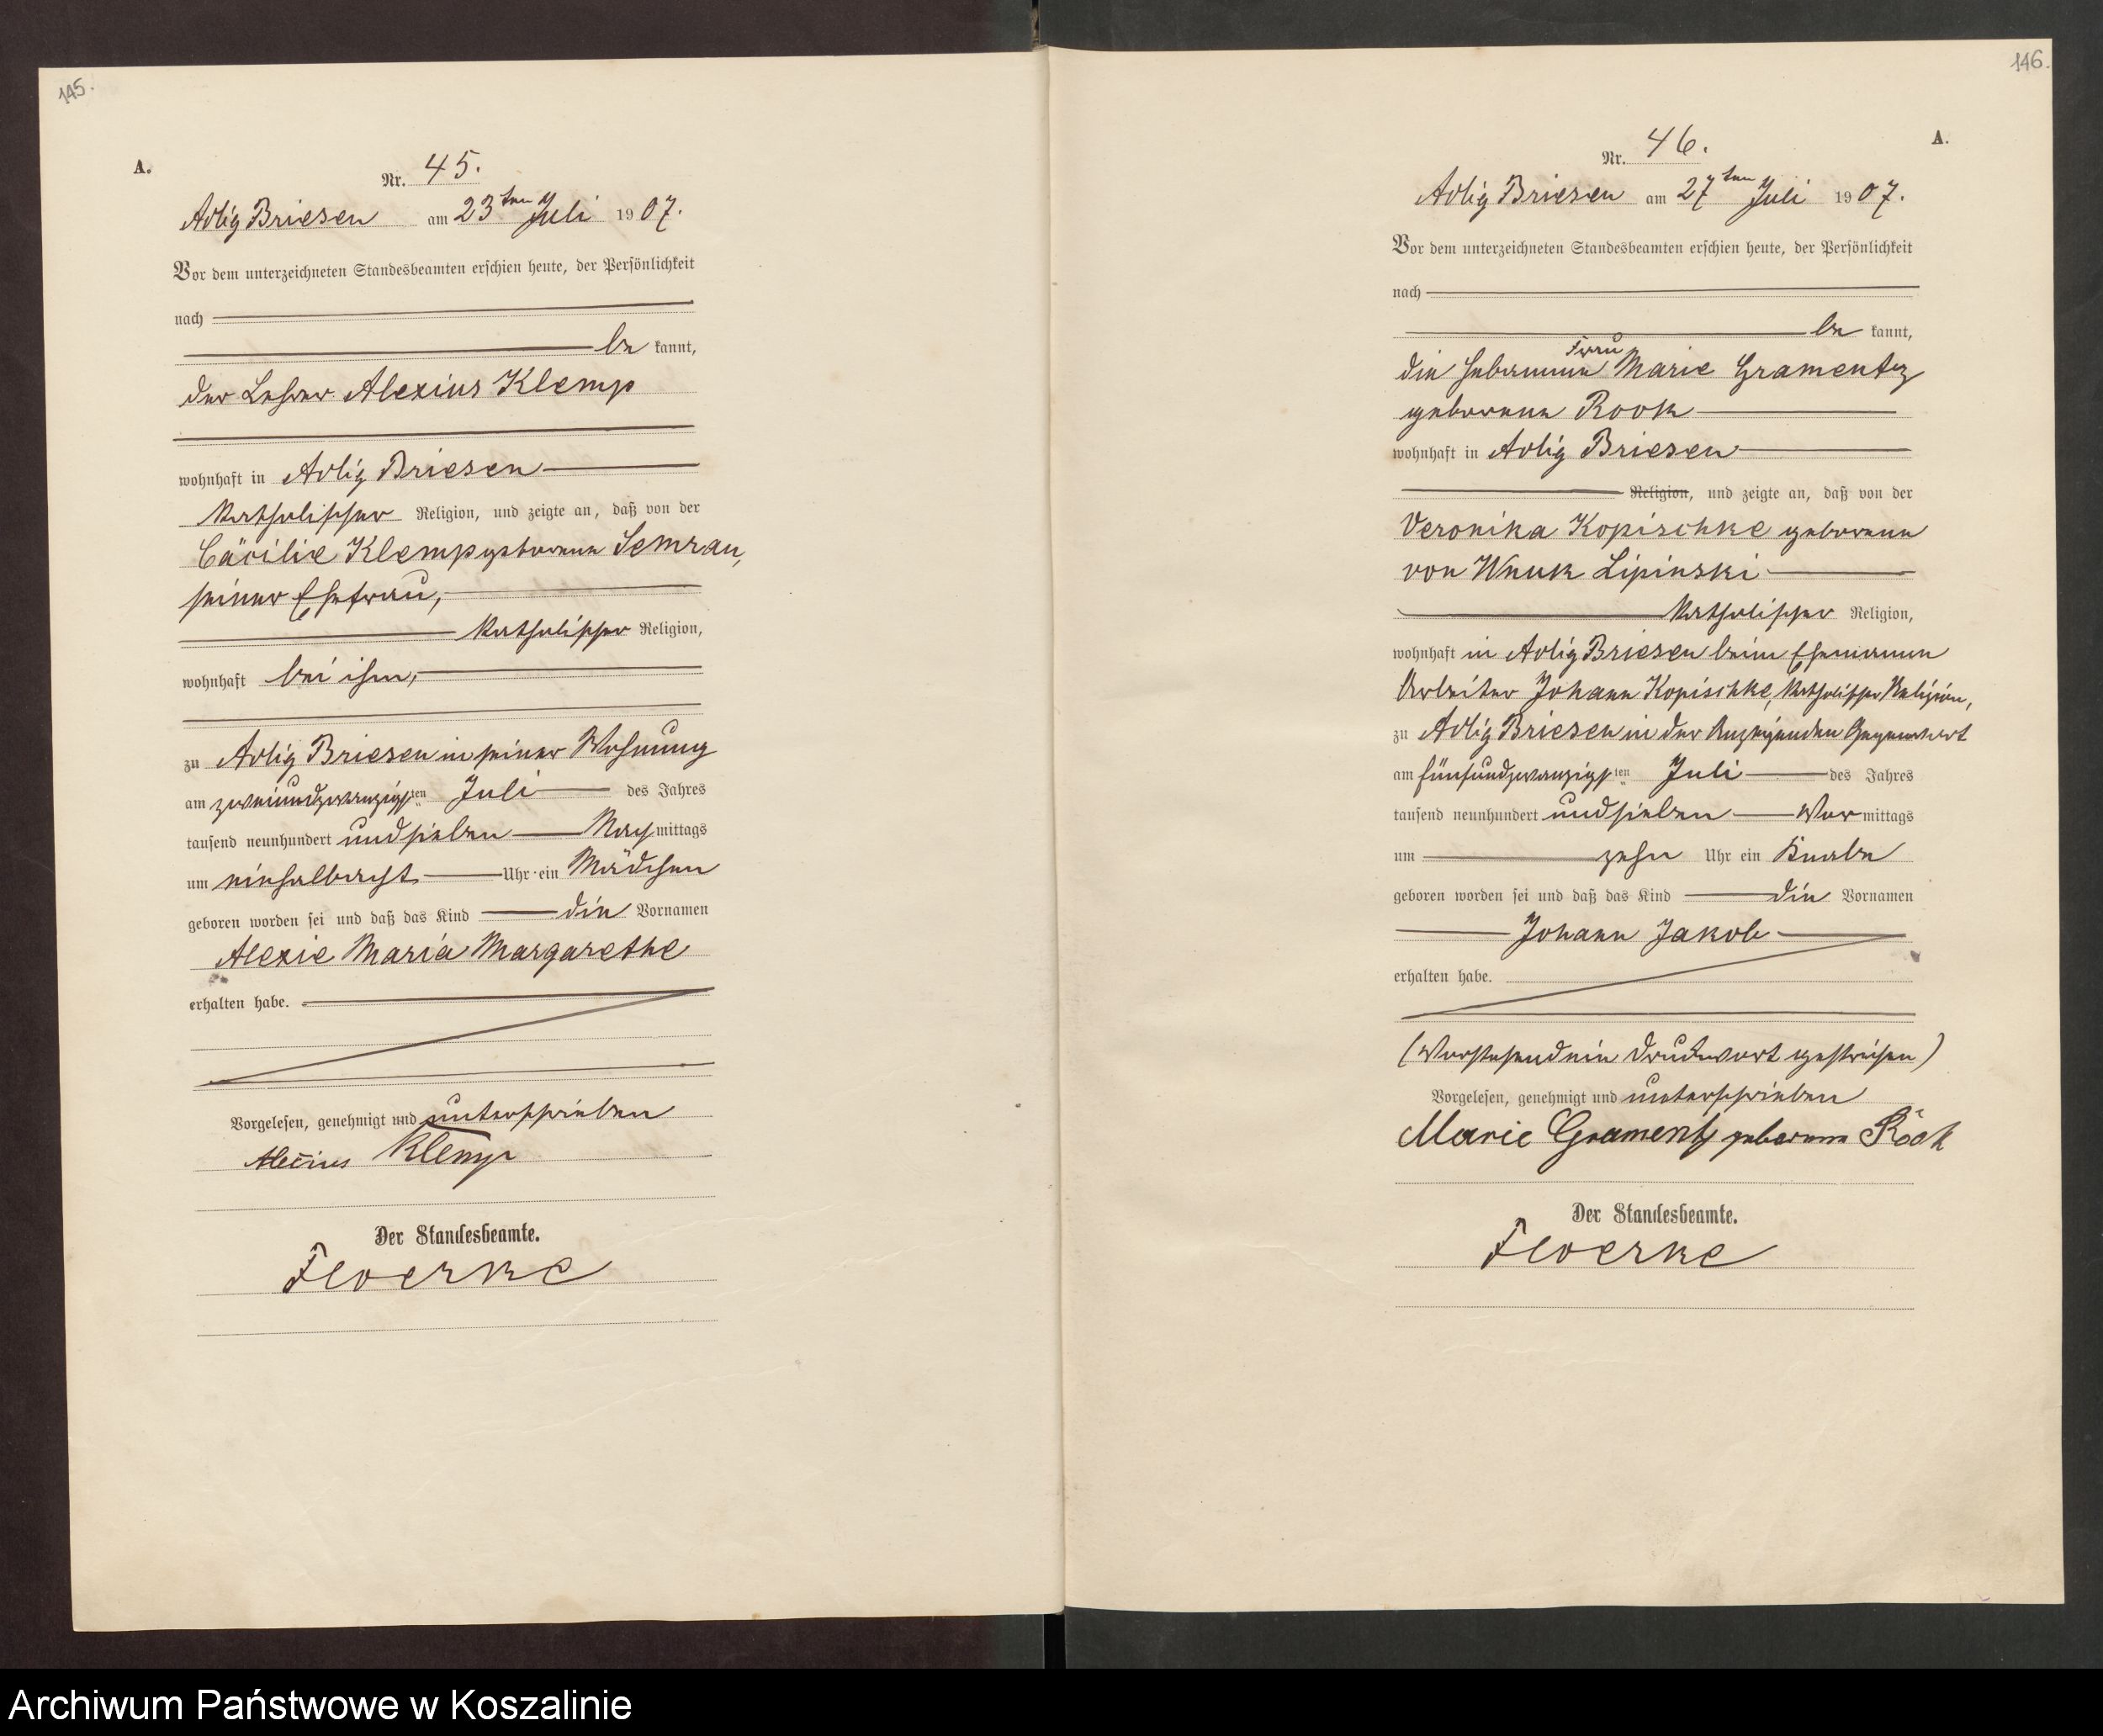 145.
A.
Nr. 45.
Adlig Briesen am 23ten Juli 1907.
Vor dem unterzeichneten Standesbeamten erschien heute, der Persönlichkeit
nach
be kannt,
der Lehrer Alexius Klemp
wohnhaft in Adlig Briesen
katholischer Religion, und zeigte an, daß von der
Cäcilie Klemp geborene Semrau,
seiner Ehefrau,
katholischer Religion,
wohnhaft bei ihm,
zu Adlig Briesen in seiner Wohnung
am zweiundzwanzigsten Juli des Jahres
tausend neunhundert und sieben Nachmittags
um einhalbacht Uhr ein Mädchen
geboren worden sei und daß das Kind die Vornamen
Alexie Maria Margarethe
erhalten habe.
Vorgelesen, genehmigt und unterschrieben
Alexius Klemp
Der Standesbeamte.
Floerke
146.
A.
Nr. 46.
Adlig Briesen am 27ten Juli 1907.
Vor dem unterzeichneten Standesbeamten erschien heute, der Persönlichkeit
nach
be kannt,
die Hebamme Frau Marie Gramentz
geborene Rook
wohnhaft in Adlig Briesen
Religion, und zeigte an, daß von der
Veronika Kopischke geborene
von Wnuk Lipinski
katholischer Religion,
wohnhaft in Adlig Briesen beim Ehemann
Arbeiter Johann Kopischke, katholischer Religion,
zu Adlig Briesen in der Anzeigenden Gegenwart
am fünfundzwanzigsten Juli des Jahres
tausend neunhundert und sieben Vormittags
um zehn Uhr ein Knabe
geboren worden sei und daß das Kind die Vornamen
Johann Jakob
erhalten habe.
(Vorstehend ein Druckwort gestrichen)
Vorgelesen, genehmigt und unterschrieben
Marie Gramentz geborene Rook
Der Standesbeamte.
Floerke
Archiwum Państwowe w Koszalinie